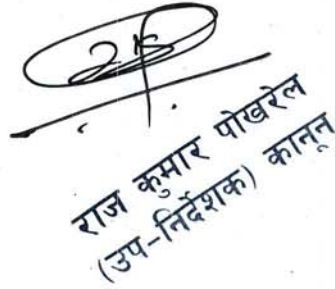 राज कुमार पोखरेल
(उप-निर्देशक) कानून